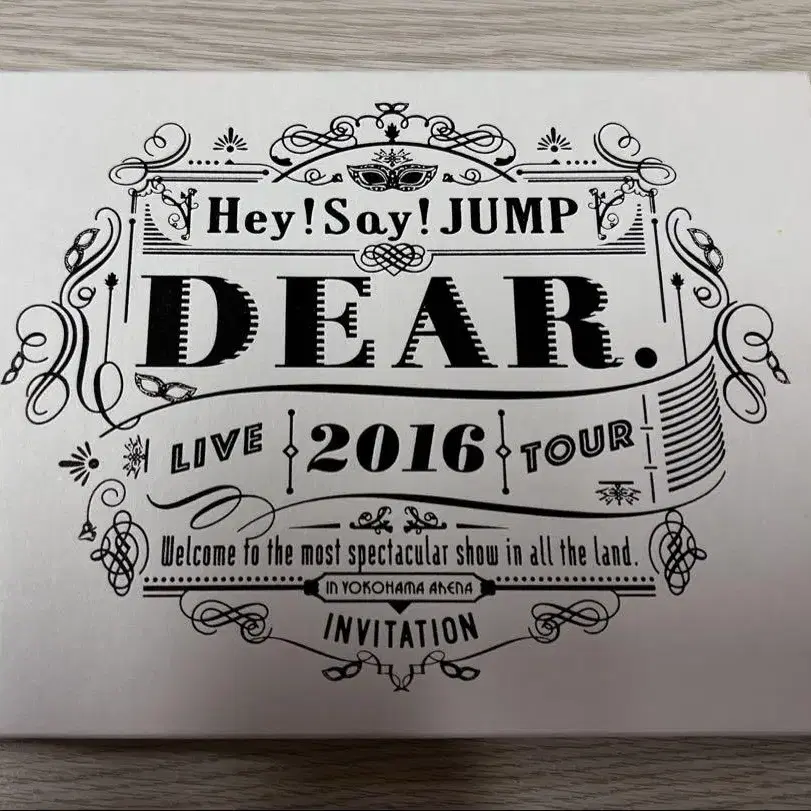 Hey!Say!JUMP
DEAR.
LIVE 2016 TOUR
Welcome to the most spectacular show in all the land.
IN YOKOHAMA ARENA
INVITATION